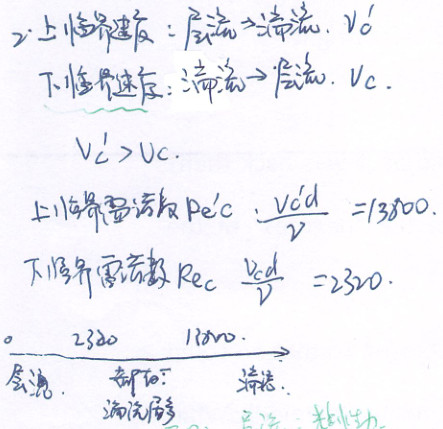 2. 上临界速度：层流→湍流. Vc'
下临界速度：湍流→层流. Vc.
Vc' > Vc.
上临界雷诺数 Re'c . Vc'd/ν = 13800.
下临界雷诺数 Rec Vcd/ν = 2320.
0 2320 13800.
层流. 湍流.
湍流居多
层流：